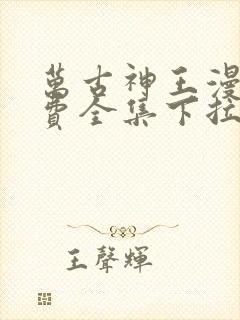 萬古神王漫
費全集下拉
王聲輝